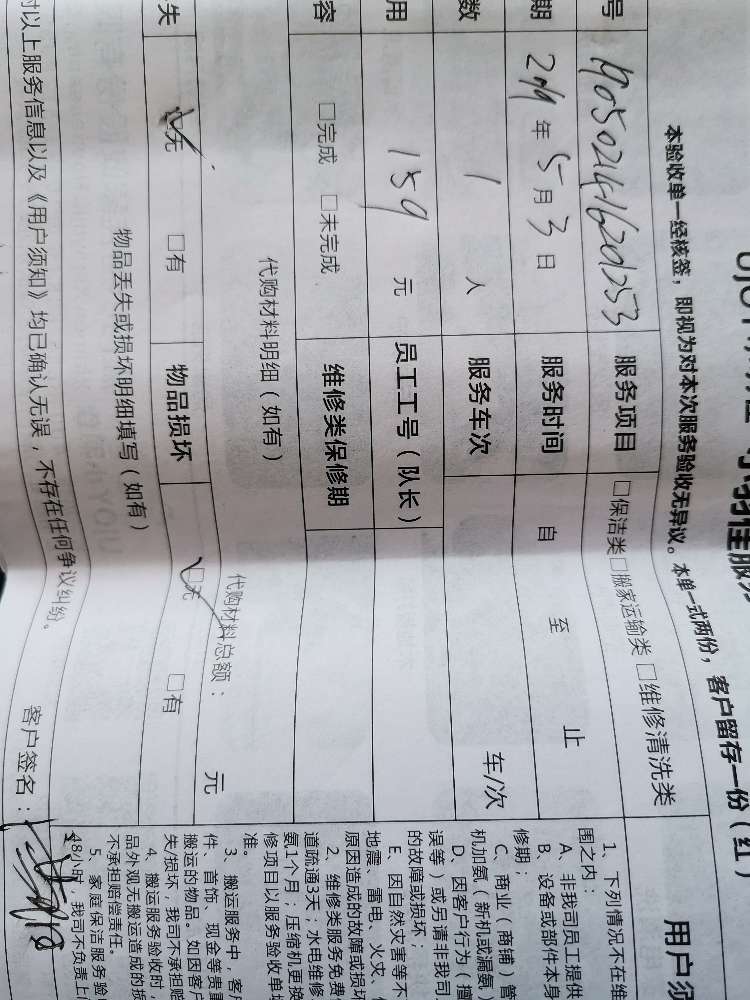 本验收单一经核签，即视为对本次服务验收无异议。本单一式两份，客户留存一份（红）
号 服务项目 □保洁类□搬家运输类 □维修清洗类
期 2019年5月3日 服务时间 自 至 止
数 1 人 服务车次 车/次
用 159 元 员工工号（队长）
容 □完成 □未完成 维修类保修期
代购材料明细（如有） 代购材料总额： 元
失 □无 □有 物品损坏 □无 □有
物品丢失或损坏明细填写（如有）
对以上服务信息以及《用户须知》均已确认无误，不存在任何争议纠纷。 客户签名：
用户须
1、下列情况不在维
围之内：
A、非我司员工提供
B、设备或部件本身
修期；
C、商业（商铺）管
机加氨（新机或漏氨）
D、因客户行为（擅
误等）或另请非我司
的故障或损坏；
E、因自然灾害等不
地震、雷电、火灾、
原因造成的故障或损坏
2、维修类服务免费
道疏通3天；水电维修
氨1个月；压缩机更换
修项目以服务验收单
准。
3、搬运服务中，客
件、首饰、现金等贵重
搬运的物品。如因客户
失/损坏，我司不承担赔
4、搬运服务验收时，
品外观无搬运造成的损
不承担赔偿责任。
5、家庭保洁服务验
48小时，我司不负责上